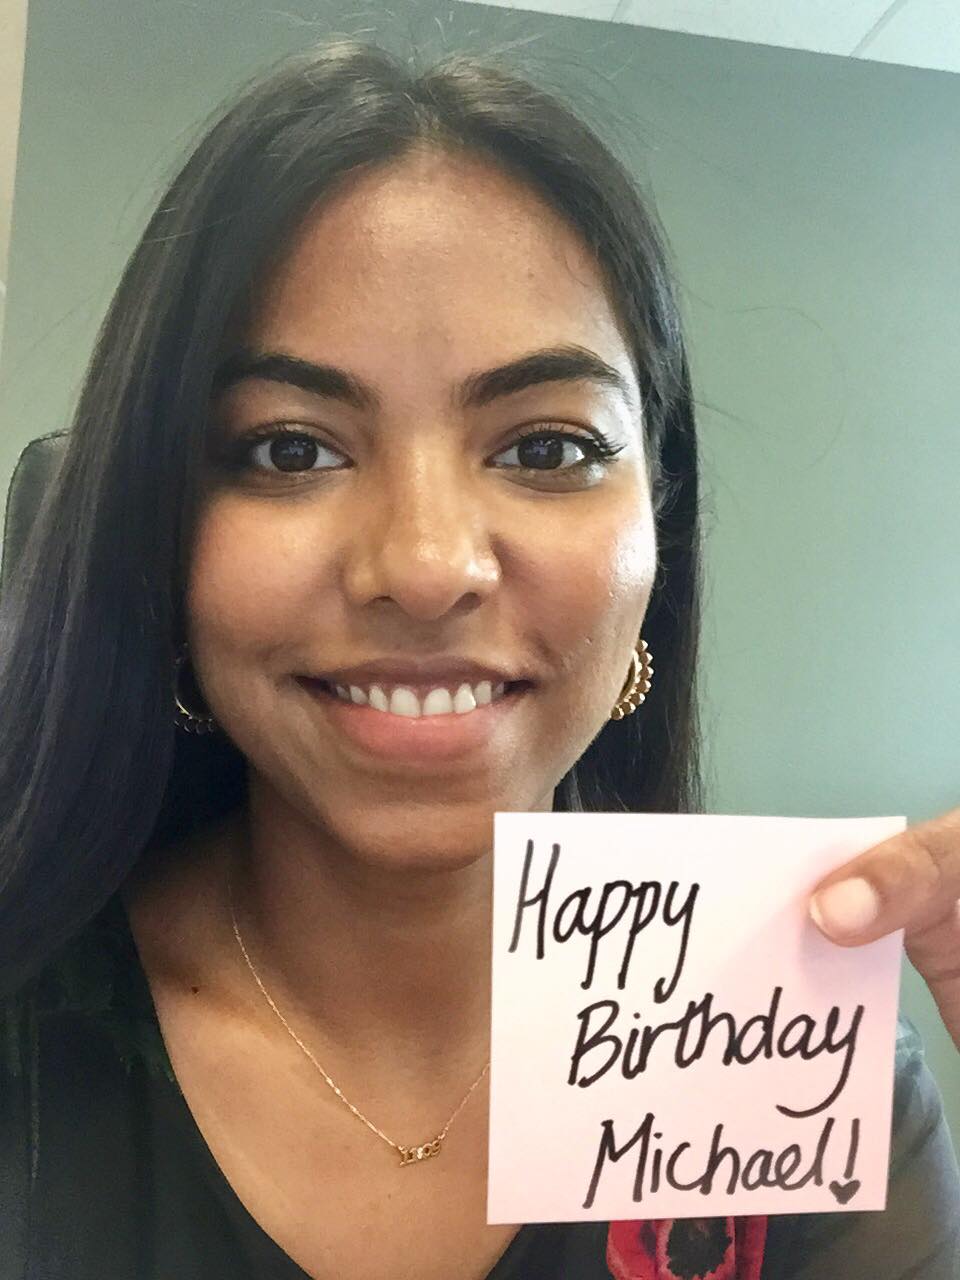 Happy
Birthday
Michael!